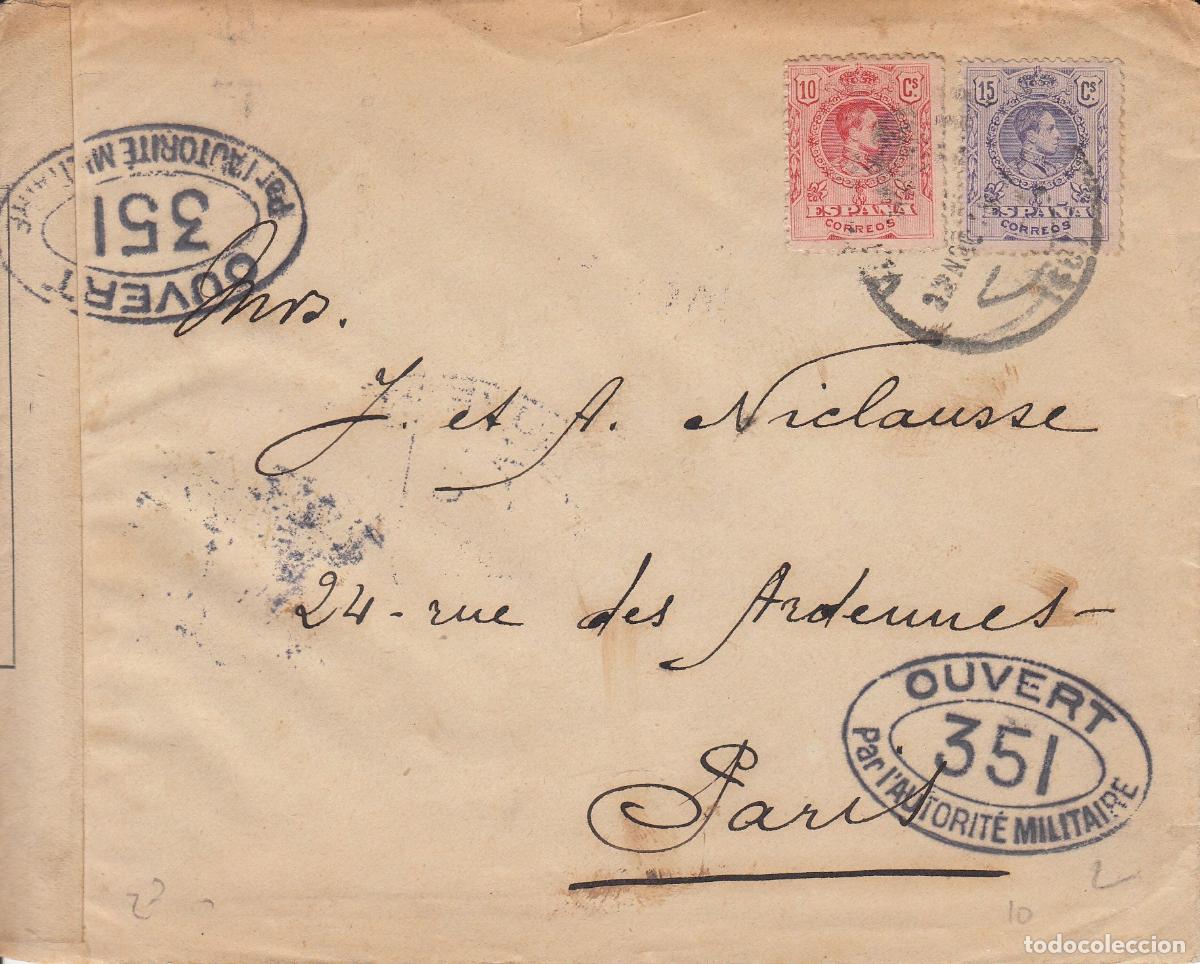 10 Cs.
ESPAÑA
CORREOS
15 Cs.
ESPAÑA
CORREOS
OUVERT
351
Par l'AUTORITÉ MILITAIRE
Mrs.
J. et A. Niclausse
24-rue des Ardennes-
Paris
OUVERT
351
Par l'AUTORITÉ MILITAIRE
10
todocoleccion